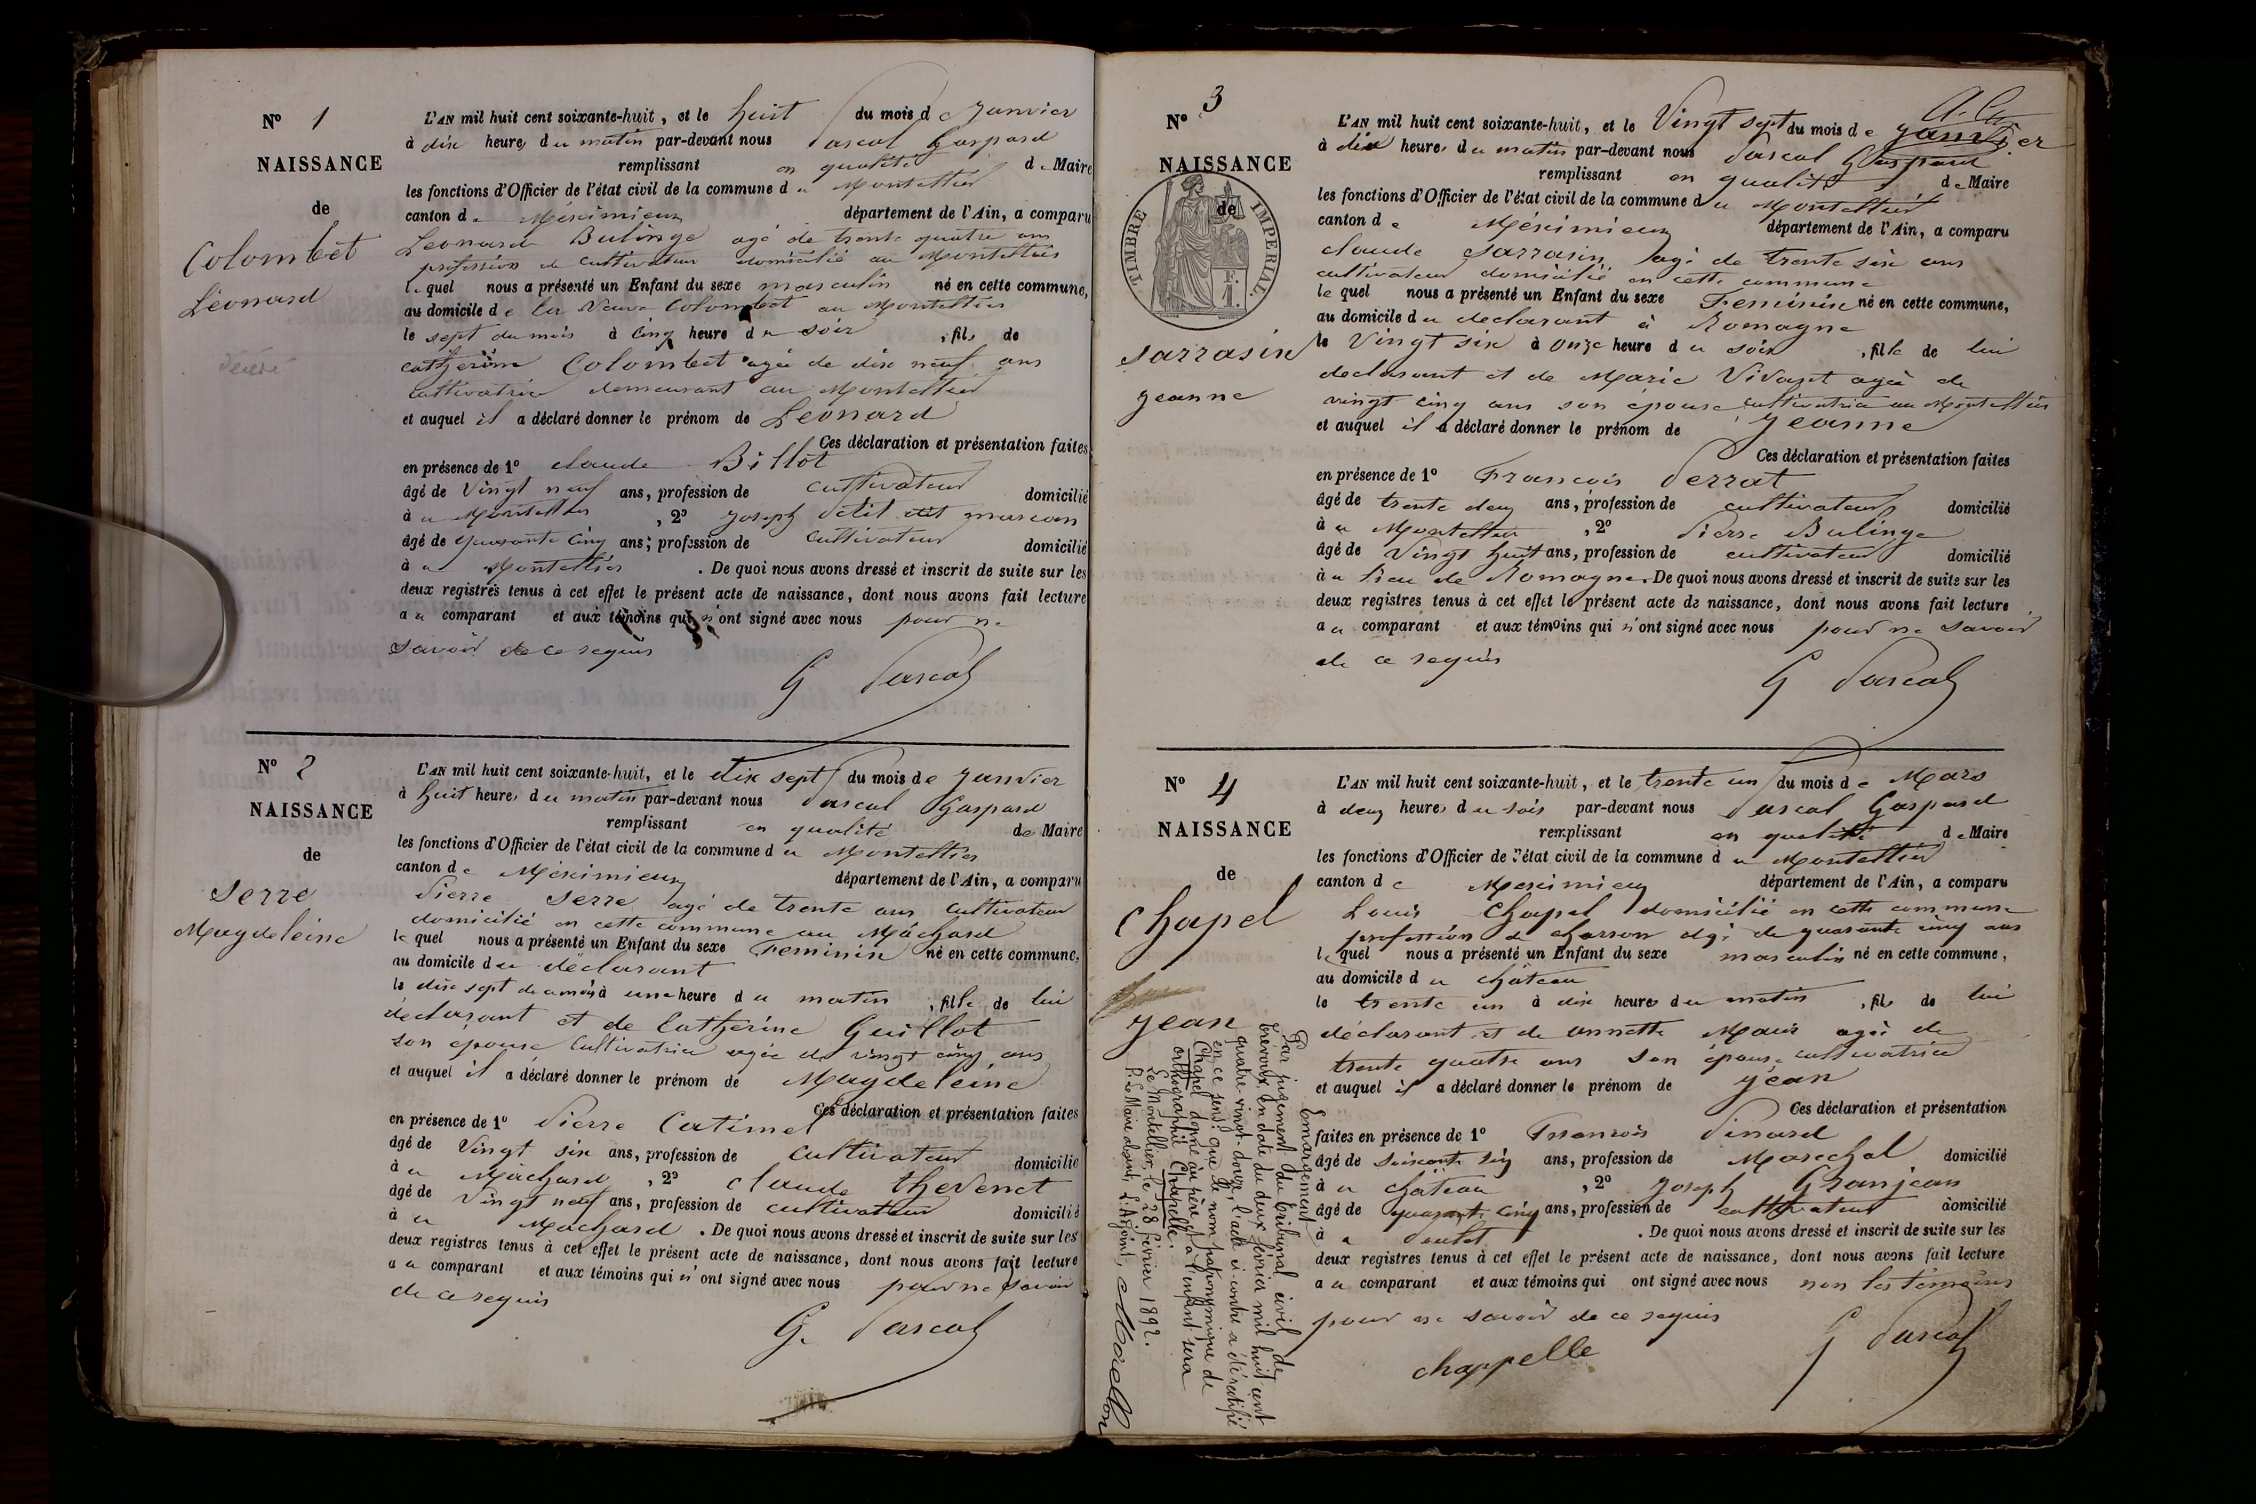 N° 1
NAISSANCE
de
Colombet
Léonard
L'AN mil huit cent soixante-huit, et le huit du mois de Janvier
à dix heures du matin par-devant nous Pascal Gaspard
remplissant en qualité de Maire
les fonctions d'Officier de l'état civil de la commune du Montellier
canton de Méximieux département de l'Ain, a comparu
Léonard Bulinge agé de trente quatre ans
profession de cultivateur domicilié au Montellier
lequel nous a présenté un Enfant du sexe masculin né en cette commune,
au domicile de la Veuve Colombet au Montellier
le sept du mois à cinq heure du soir , fils de
catherine Colombet agée de dix neuf ans
cultivatrice demeurant au Montellier
et auquel il a déclaré donner le prénom de Léonard
Ces déclaration et présentation faites
en présence de 1° claude Billot
âgé de Vingt neuf ans, profession de cultivateur domicilié
à au Montellier , 2° Joseph Petit dit marcon
âgé de quarante cinq ans; profession de cultivateur domicilié
à au Montellier . De quoi nous avons dressé et inscrit de suite sur les
deux registres tenus à cet effet le présent acte de naissance, dont nous avons fait lecture
a u comparant et aux témoins qui n'ont signé avec nous pour ne
savoir de ce requis
G Pascal
N° 2
NAISSANCE
de
Serre
Magdeleine
L'AN mil huit cent soixante-huit, et le dix sept du mois de Janvier
à huit heures du matin par-devant nous Pascal Gaspard
remplissant en qualité de Maire
les fonctions d'Officier de l'état civil de la commune du Montellier
canton de Méximieux département de l'Ain, a comparu
Pierre Serre agé de trente ans cultivateur
domicilié en cette commune au Máchard
lequel nous a présenté un Enfant du sexe Feminin né en cette commune,
au domicile du déclarant
le dix sept du mois à une heure du matin , fille de lui
déclarant et de Catherine Guillot
son épouse cultivatrice agée de vingt cinq ans
et auquel il a déclaré donner le prénom de Magdeleine
Ces déclaration et présentation faites
en présence de 1° Pierre Catimel
âgé de Vingt six ans, profession de cultivateur domicilié
à au Máchard , 2° claude thevenet
âgé de Vingt neuf ans, profession de cultivateur domicilié
à au Máchard . De quoi nous avons dressé et inscrit de suite sur les
deux registres tenus à cet effet le présent acte de naissance, dont nous avons fait lecture
a u comparant et aux témoins qui n'ont signé avec nous pour ne savoir
de ce requis
G. Pascal
N° 3
NAISSANCE
de
TIMBRE IMPERIAL.
F. 1.
Sarrasin
Jeanne
L'AN mil huit cent soixante-huit, et le Vingt sept du mois de Janvier
à dix heures du matin par-devant nous Pascal Gaspard
remplissant en qualité de Maire
les fonctions d'Officier de l'état civil de la commune du Montellier
canton de Méximieux département de l'Ain, a comparu
claude Sarrasin agé de trente six ans
cultivateur domicilié en cette commune
lequel nous a présenté un Enfant du sexe Feminin né en cette commune,
au domicile du declarant à Romagne
le Vingt six à onze heure du soir , fille de lui
declarant et de Marie Vivant agée de
vingt cinq ans son épouse cultivatrice au Montellier
et auquel il a déclaré donner le prénom de Jeanne
Ces déclaration et présentation faites
en présence de 1° Francois Perrat
âgé de trente deux ans, profession de cultivateur domicilié
à au Montellier , 2° Pierre Bulinge
âgé de Vingt huit ans, profession de cultivateur domicilié
à u lieu de Romagne. De quoi nous avons dressé et inscrit de suite sur les
deux registres tenus à cet effet le présent acte de naissance, dont nous avons fait lecture
a u comparant et aux témoins qui n'ont signé avec nous pour ne savoir
de ce requis
G Pascal
N° 4
NAISSANCE
de
Chapel
Jean
Emargement
Par jugement du tribunal civil de
Trévoux en date du deux février mil huit cent
quatre-vingt-douze, l'acte ci-contre a été rectifié
en ce sens: que le nom patronymique de
Chapel donné au père et à l'enfant sera
orthographié Chapelle.
Le Montellier, le 28 février 1892.
P. Le Maire absent, L'Adjoint,
L'AN mil huit cent soixante-huit, et le trente un du mois de Mars
à deux heures du soir par-devant nous Pascal Gaspard
remplissant en qualité de Maire
les fonctions d'Officier de l'état civil de la commune du Montellier
canton de Meximieux département de l'Ain, a comparu
Louis Chapel domicilié en cette commune
profession de charron agé de quarante cinq ans
lequel nous a présenté un Enfant du sexe masculin né en cette commune,
au domicile du château
le trente un à dix heures du matin , fils de lui
déclarant et de annette Maix agée de
trente quatre ans son épouse cultivatrice
et auquel il a déclaré donner le prénom de Jean
Ces déclaration et présentation
faites en présence de 1° Francois Pinard
âgé de soixante six ans, profession de Marechal domicilié
à au château , 2° Joseph Granjean
âgé de quarante cinq ans, profession de cultivateur domicilié
. De quoi nous avons dressé et inscrit de suite sur les
deux registres tenus à cet effet le présent acte de naissance, dont nous avons fait lecture
a u comparant et aux témoins qui ont signé avec nous non les témoins
pour ne savoir de ce requis
chappelle G Pascal